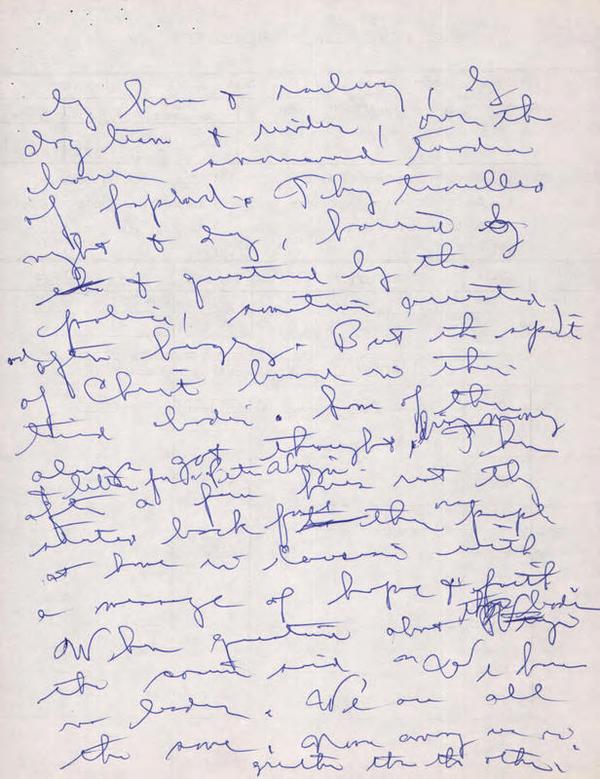 by bus & railway, by
dog team & reindeer, over the
barren snowbound tundra
of Lapland. They travelled
night & day, harried by
& questioned by the
police, sometimes arrested,
and often hungry. But the spirit
of Christ burned in their
tired bodies. Some of them
always got through, bringing many
letters for
after a few hours rest they
started back for their people
at home in with
a message of hope & faith
When questioned about
the said "We have
no leader. We are all
the same. None among us is
greater than the other.